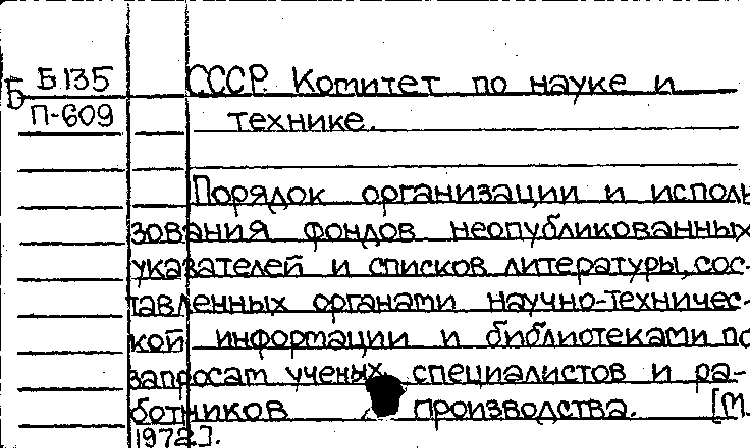 Б Б135 СССР. Комитет по науке и
П-609 технике.
Порядок организации и исполь
зования фондов неопубликованных
указателей и списков литературы, сос-
тавленных органами научно-техничес-
кой информации и библиотеками по
запросам ученых специалистов и ра-
ботников производства. [М.
1972].